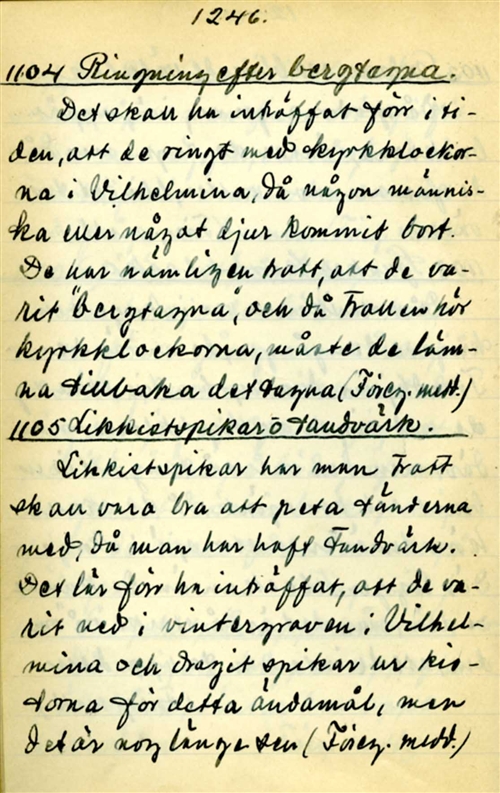 1246.
1104 Ringning efter bergtagna.
Det skall ha inträffat förr i ti-
den, att de ringt med kyrkklockor-
na i Vilhelmina, då någon männis-
ka eller något djur kommit bort.
De har nämligen trott, att de va-
rit "bergtagna", och då trollen hör
kyrkklockorna, måste de läm-
na tillbaka det tagna (Föreg. medd.)
1105 Likkistspikar o tandvärk.
Likkistspikar har man trott
skall vara bra att peta tänderna
med, då man har haft tandvärk.
Det lär förr ha inträffat, att de va-
rit ned i vintergraven i Vilhel-
mina och dragit spikar ur kis-
torna för detta ändamål, men
det är nog länge sen (Föreg. medd.)